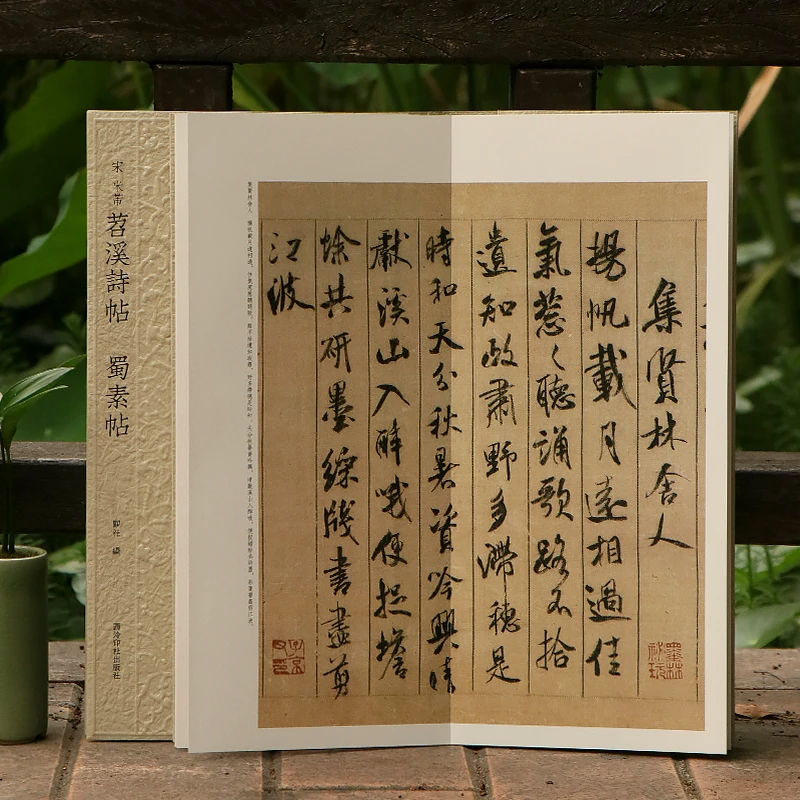 宋 米芾
苕溪詩帖 蜀素帖
西泠印社出版社
集賢林舍人
揚帆載月遠相過佳
氣葱々聽誦歌路不拾
遺知政肅野多滯穗是
時和天分秋暑資吟興晴
獻溪山入醉哦便捉蟾
蜍共研墨綵牋書盡剪
江波